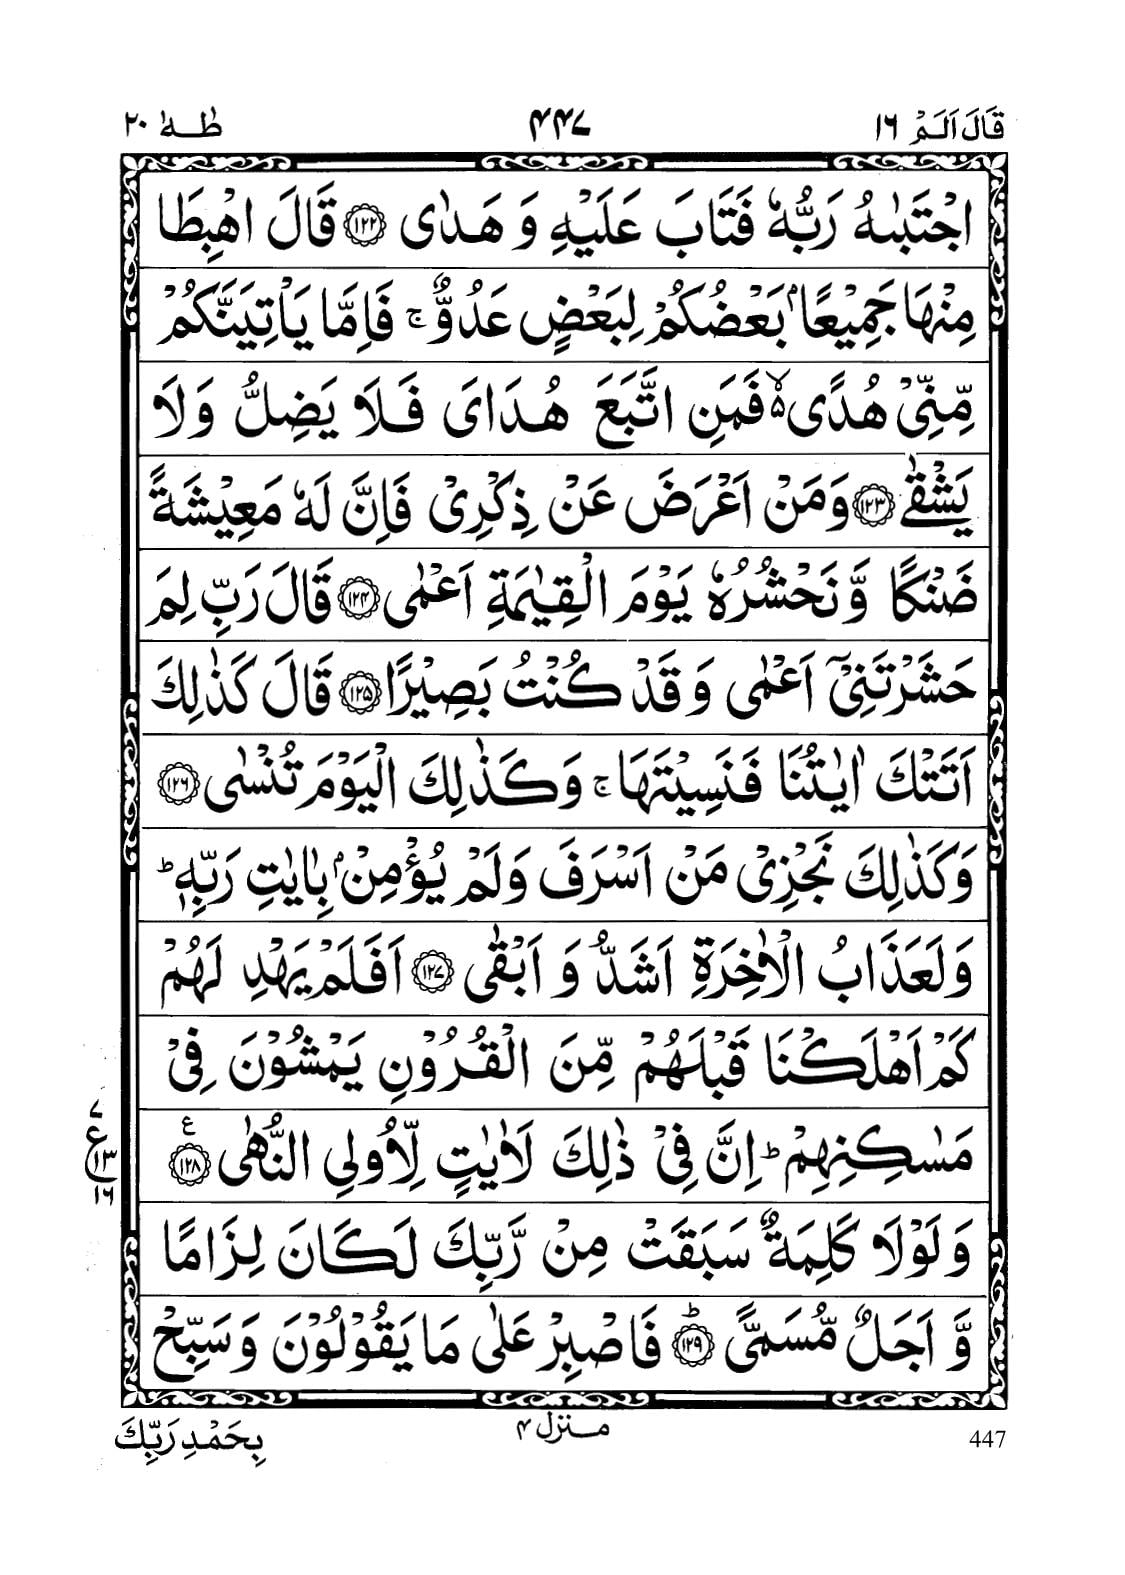 قَالَ اَلَمْ ١٦ ۴۴۷ طٰهٰ ٢٠
اجْتَبٰىهُ رَبُّهٗ فَتَابَ عَلَيْهِ وَ هَدٰى ﴿١٢٢﴾ قَالَ اهْبِطَا
مِنْهَا جَمِيْعًۢا بَعْضُكُمْ لِبَعْضٍ عَدُوٌّ ۚ فَاِمَّا يَاْتِيَنَّكُمْ
مِّنِّيْ هُدًى ۙ۬ فَمَنِ اتَّبَعَ هُدَايَ فَلَا يَضِلُّ وَلَا
يَشْقٰى ﴿١٢٣﴾ وَمَنْ اَعْرَضَ عَنْ ذِكْرِيْ فَاِنَّ لَهٗ مَعِيْشَةً
ضَنْكًا وَّ نَحْشُرُهٗ يَوْمَ الْقِيٰمَةِ اَعْمٰى ﴿١٢۴﴾ قَالَ رَبِّ لِمَ
حَشَرْتَنِيْۤ اَعْمٰى وَ قَدْ كُنْتُ بَصِيْرًا ﴿١٢۵﴾ قَالَ كَذٰلِكَ
اَتَتْكَ اٰيٰتُنَا فَنَسِيْتَهَا ۚ وَ كَذٰلِكَ الْيَوْمَ تُنْسٰى ﴿١٢٦﴾
وَ كَذٰلِكَ نَجْزِيْ مَنْ اَسْرَفَ وَلَمْ يُؤْمِنْۢ بِاٰيٰتِ رَبِّهٖ ؕ
وَ لَعَذَابُ الْاٰخِرَةِ اَشَدُّ وَ اَبْقٰى ﴿١٢٧﴾ اَفَلَمْ يَهْدِ لَهُمْ
كَمْ اَهْلَكْنَا قَبْلَهُمْ مِّنَ الْقُرُوْنِ يَمْشُوْنَ فِيْ
مَسٰكِنِهِمْ ؕ اِنَّ فِيْ ذٰلِكَ لَاٰيٰتٍ لِّاُولِي النُّهٰى ﴿١٢٨﴾ ع
٧ ع ١٣ ١٦
وَ لَوْلَا كَلِمَةٌ سَبَقَتْ مِنْ رَّبِّكَ لَكَانَ لِزَامًا
وَّ اَجَلٌ مُّسَمًّى ﴿١٢٩﴾ ؕ فَاصْبِرْ عَلٰى مَا يَقُوْلُوْنَ وَ سَبِّحْ
447 منزل ۴ بِحَمْدِ رَبِّكَ